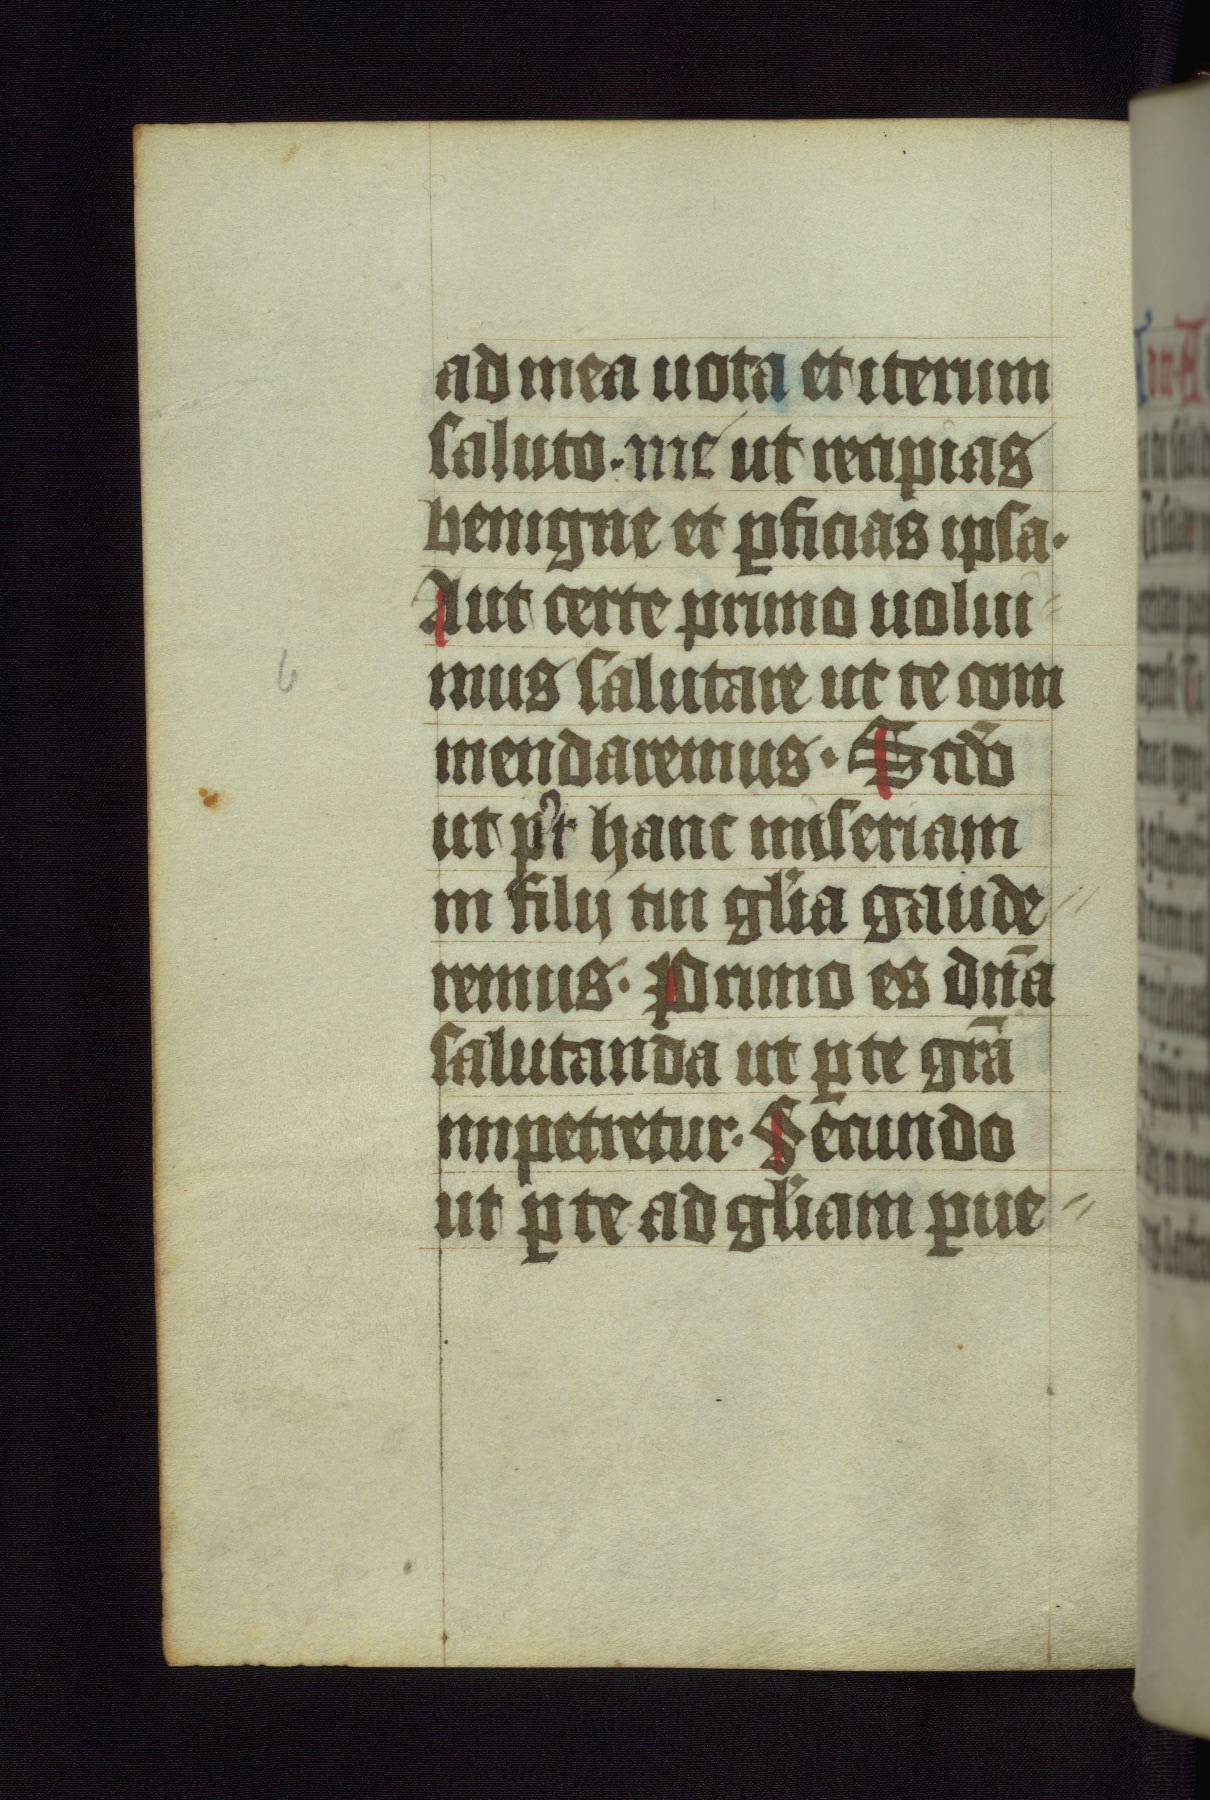 ad mea uota et iterum
saluto · me ut recipias
benigne et ꝑficias ipsa ·
Aut certe primo uolui⸗
mus salutare ut te com
mendaremus · Scdo̅
ut pꝰt hanc miseriam
in filij tui glia gaude⸗
remus · Primo es dn̅a
salutanda ut ꝑ te gra̅
impetretur · Secundo
ut ꝑ te ad gliam ꝑue⸗
6